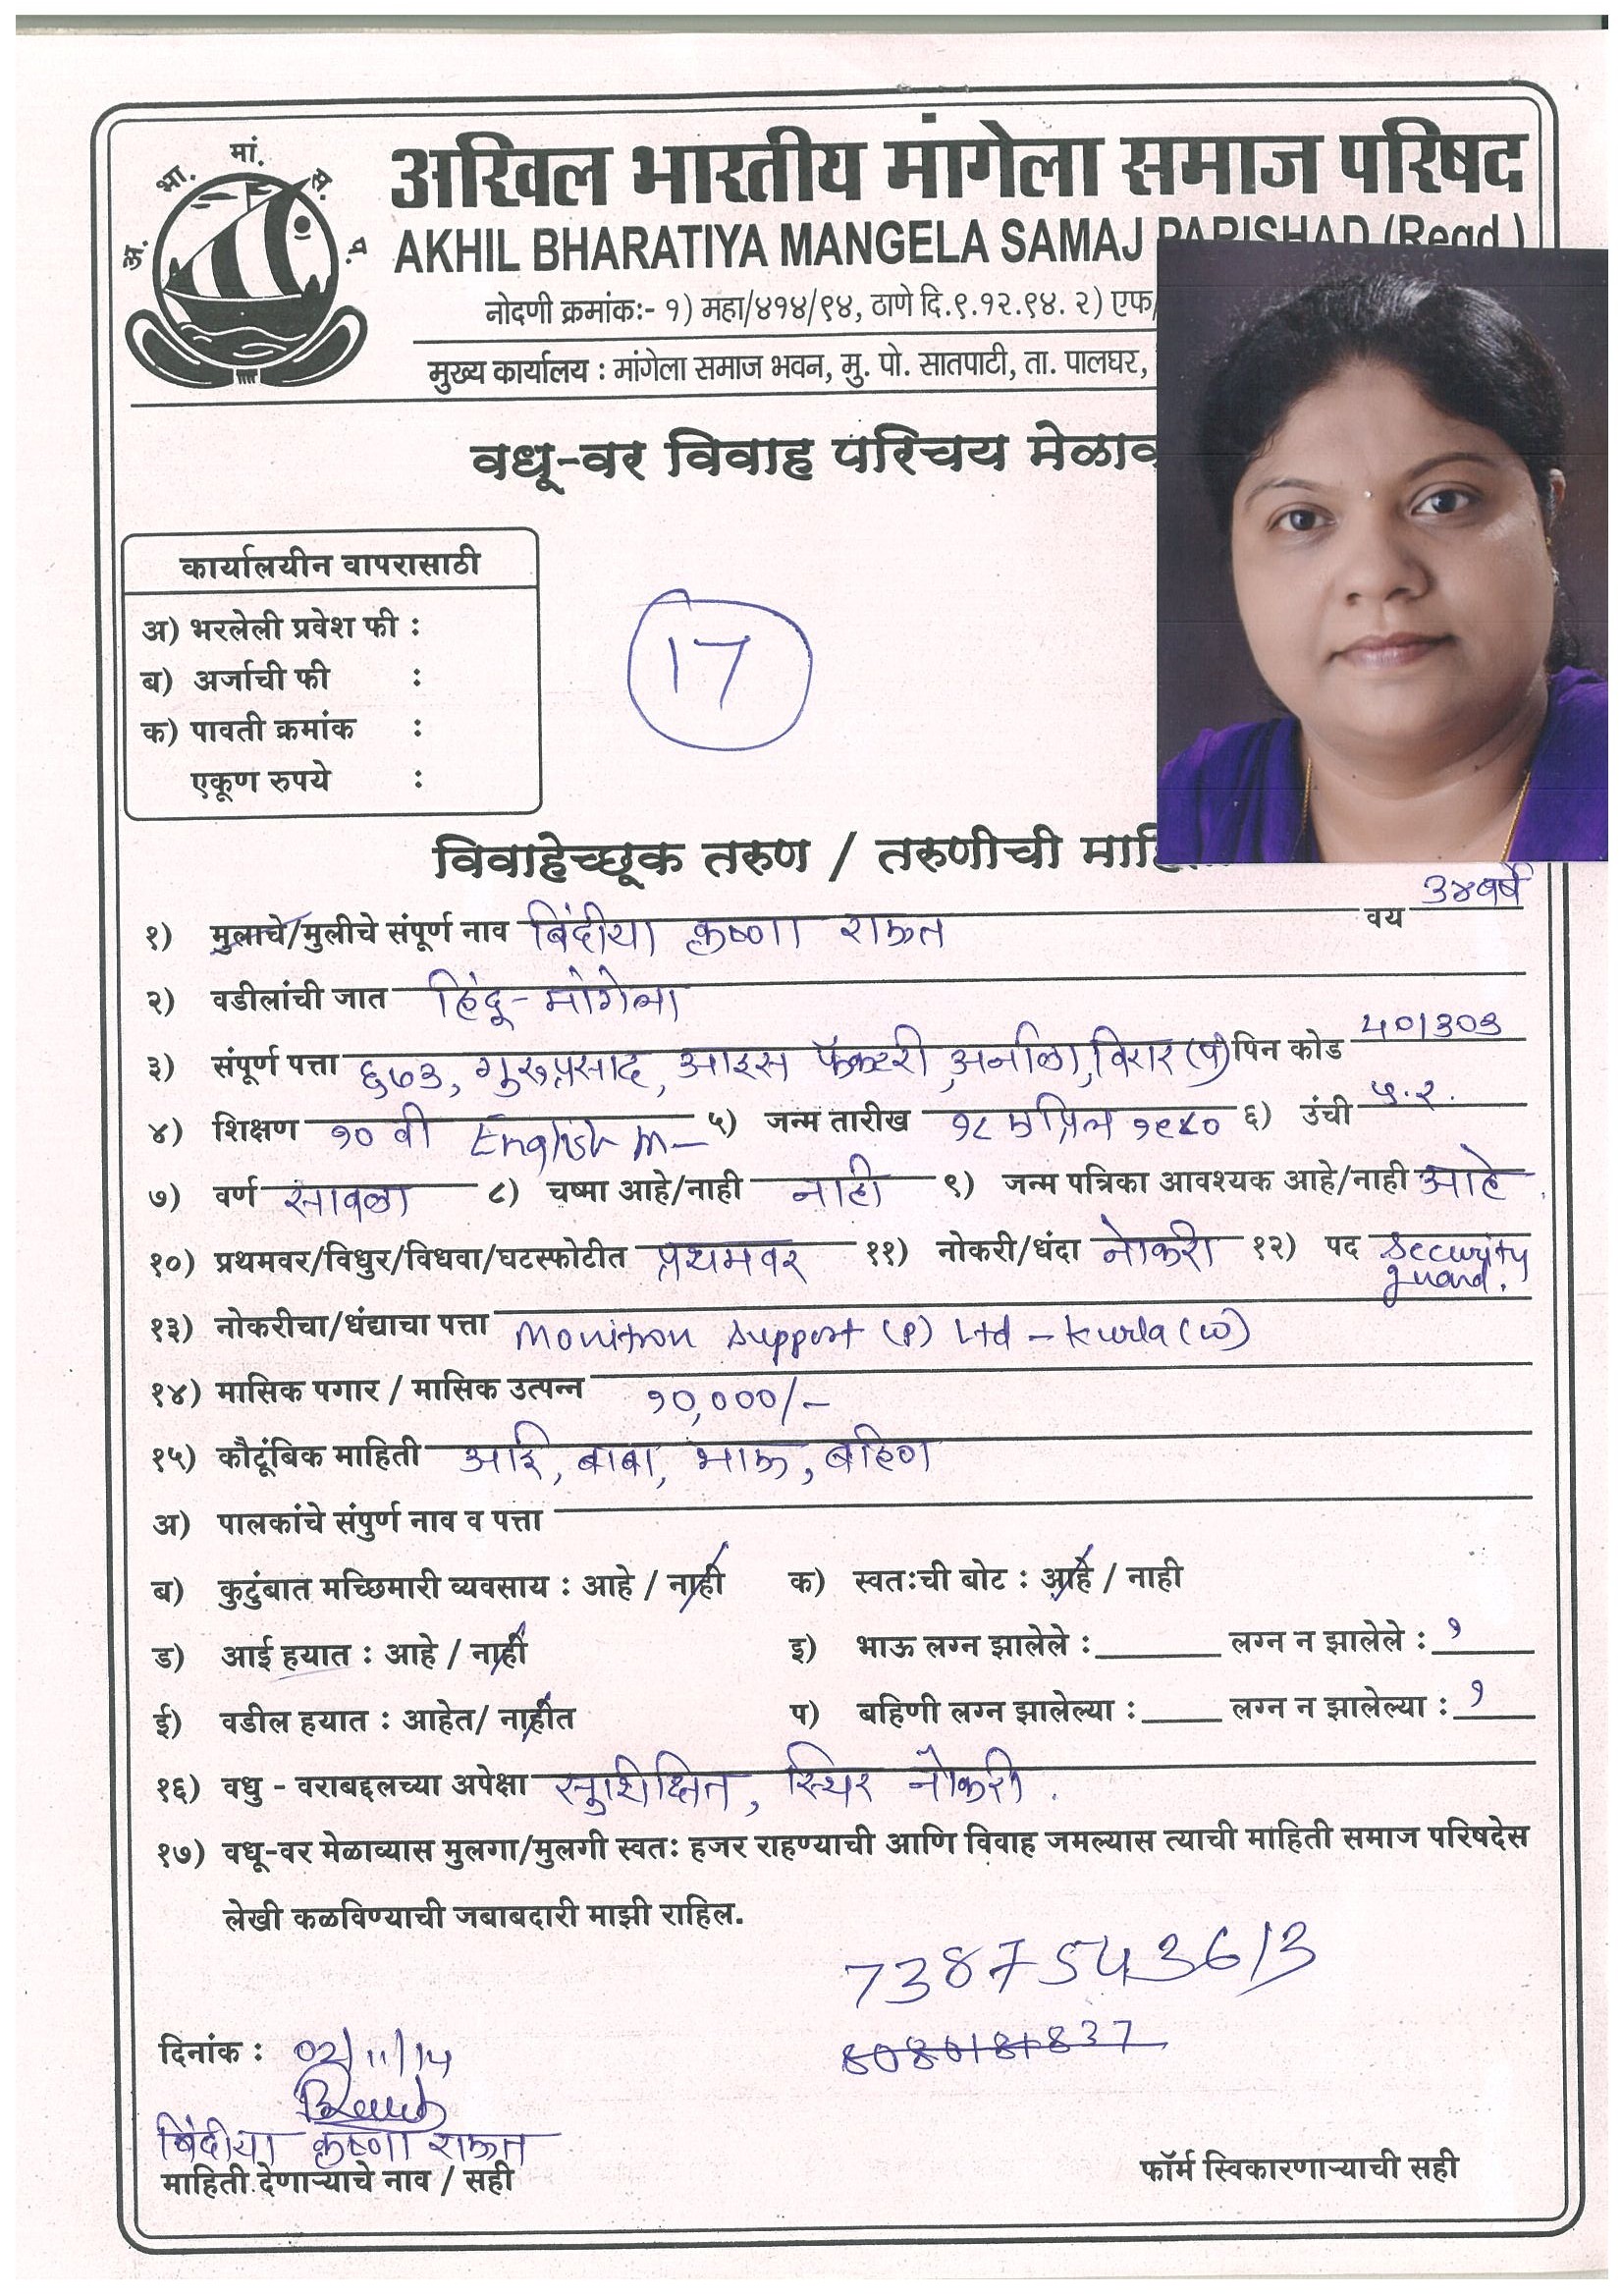 अ. भा. मां. स. प.
अखिल भारतीय मांगेला समाज परिषद
AKHIL BHARATIYA MANGELA SAMAJ PARISHAD (Regd.)
नोदणी क्रमांकः- १) महा/४१४/९४, ठाणे दि.९.१२.९४. २) एफ/
मुख्य कार्यालय : मांगेला समाज भवन, मु. पो. सातपाटी, ता. पालघर,
वधू-वर विवाह परिचय
कार्यालयीन वापरासाठी
अ) भरलेली प्रवेश फी :
ब) अर्जाची फी :
क) पावती क्रमांक :
एकूण रुपये :
17
विवाहेच्छूक तरुण / तरुणीची
१) मुलाचे/मुलीचे संपूर्ण नाव बिंदीया कृष्णा राऊत वय ३४ वर्षे
२) वडीलांची जात हिंदू - मांगेला
३) संपूर्ण पत्ता ६७३, गुरुप्रसाद, आइस फॅक्टरी, अर्नाळा, विरार (प) पिन कोड 401303
४) शिक्षण १० वी English m- ५) जन्म तारीख १८ एप्रिल १९८० ६) उंची ५.२.
७) वर्ण सावळा ८) चष्मा आहे/नाही नाही ९) जन्म पत्रिका आवश्यक आहे/नाही आहे.
१०) प्रथमवर/विधुर/विधवा/घटस्फोटीत प्रथमवर ११) नोकरी/धंदा नोकरी १२) पद Security guard.
१३) नोकरीचा/धंद्याचा पत्ता Monitron Support (P) Ltd - Kurla (W)
१४) मासिक पगार / मासिक उत्पन्न १०,०००/-
१५) कौटूंबिक माहिती आई, बाबा, भाऊ, बहिण
अ) पालकांचे संपुर्ण नाव व पत्ता
ब) कुटुंबात मच्छिमारी व्यवसाय : आहे / नाही क) स्वतःची बोट : आहे / नाही
ड) आई हयात : आहे / नाही इ) भाऊ लग्न झालेले : लग्न न झालेले : १
ई) वडील हयात : आहेत/ नाहीत प) बहिणी लग्न झालेल्या : लग्न न झालेल्या : १
१६) वधु - वराबद्दलच्या अपेक्षा सुशिक्षित, स्थिर नोकरी.
१७) वधू-वर मेळाव्यास मुलगा/मुलगी स्वतः हजर राहण्याची आणि विवाह जमल्यास त्याची माहिती समाज परिषदेस
लेखी कळविण्याची जबाबदारी माझी राहिल.
7387543613
8080181837
दिनांक : 02/11/14
बिंदीया कृष्णा राऊत
माहिती देणाऱ्याचे नाव / सही
फॉर्म स्विकारणाऱ्याची सही